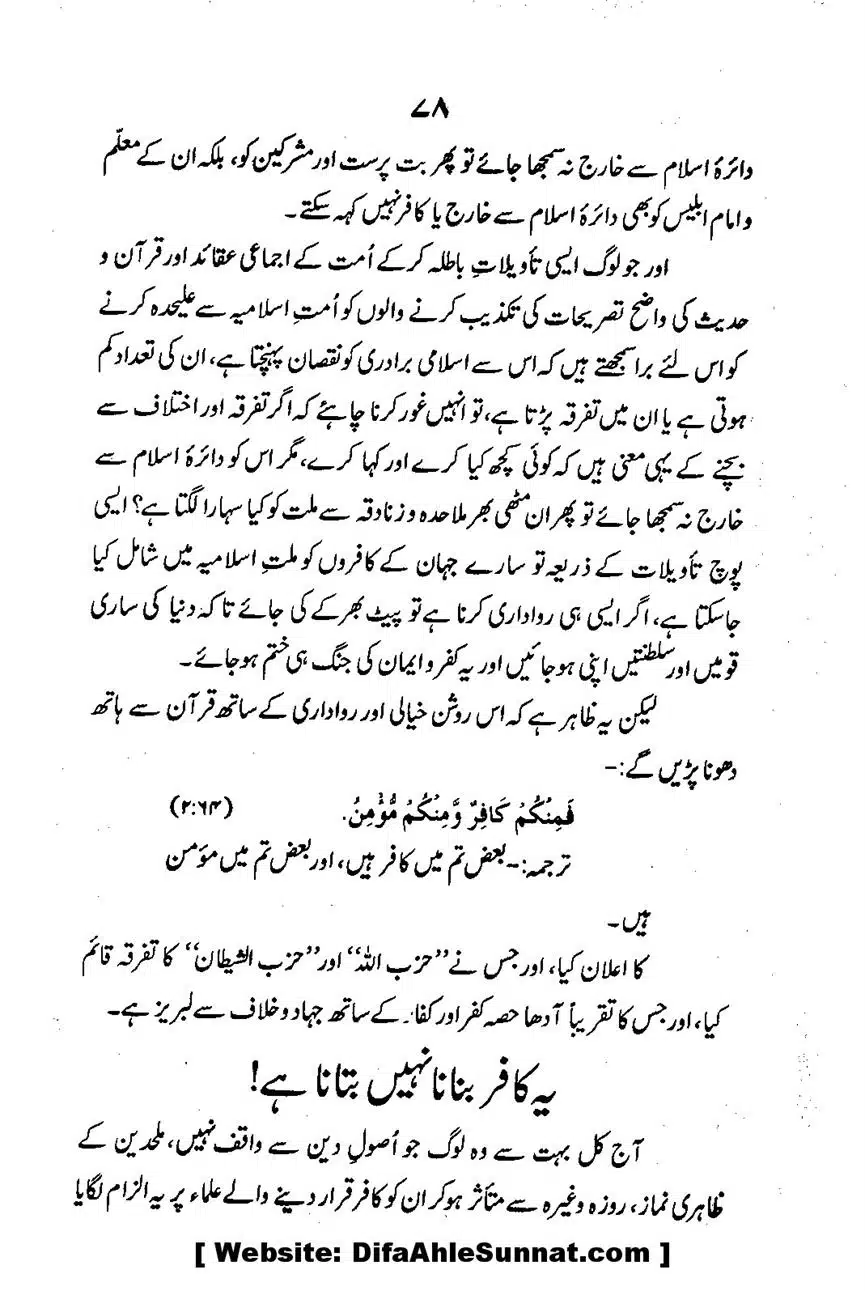 ۷۸
دائرۂ اسلام سے خارج نہ سمجھا جائے تو پھر بت پرست اور مشرکین کو، بلکہ ان کے معلّم
و امام ابلیس کو بھی دائرۂ اسلام سے خارج یا کافر نہیں کہہ سکتے۔
اور جو لوگ ایسی تأویلاتِ باطلہ کرکے اُمت کے اجماعی عقائد اور قرآن و
حدیث کی واضح تصریحات کی تکذیب کرنے والوں کو اُمتِ اسلامیہ سے علیحدہ کرنے
کو اس لئے برا سمجھتے ہیں کہ اس سے اسلامی برادری کو نقصان پہنچتا ہے، ان کی تعداد کم
ہوتی ہے یا ان میں تفرقہ پڑتا ہے، تو انہیں غور کرنا چاہئے کہ اگر تفرقہ اور اختلاف سے
بچنے کے یہی معنی ہیں کہ کوئی کچھ کیا کرے اور کہا کرے، مگر اس کو دائرۂ اسلام سے
خارج نہ سمجھا جائے تو پھر ان مٹھی بھر ملاحدہ و زنادقہ سے ملت کو کیا سہارا لگتا ہے؟ ایسی
پوچ تأویلات کے ذریعہ تو سارے جہان کے کافروں کو ملتِ اسلامیہ میں شامل کیا
جاسکتا ہے، اگر ایسی ہی رواداری کرنا ہے تو پیٹ بھر کے کی جائے تاکہ دنیا کی ساری
قومیں اور سلطنتیں اپنی ہوجائیں اور یہ کفر و ایمان کی جنگ ہی ختم ہوجائے۔
لیکن یہ ظاہر ہے کہ اس روشن خیالی اور رواداری کے ساتھ قرآن سے ہاتھ
دھونا پڑیں گے:-
فَمِنْكُمْ كَافِرٌ وَّمِنْكُمْ مُّؤْمِنٌ. (۲:۶۴)
ترجمہ:- بعض تم میں کافر ہیں، اور بعض تم میں مؤمن
ہیں۔
کا اعلان کیا، اور جس نے ''حزب اللہ'' اور ''حزب الشیطان'' کا تفرقہ قائم
کیا، اور جس کا تقریباً آدھا حصہ کفر اور کفار کے ساتھ جہاد و خلاف سے لبریز ہے۔
یہ کافر بنانا نہیں بتانا ہے!
آج کل بہت سے وہ لوگ جو اُصولِ دین سے واقف نہیں، ملحدین کے
ظاہری نماز، روزہ وغیرہ سے متأثر ہوکر ان کو کافر قرار دینے والے علماء پر یہ الزام لگایا
[ Website: DifaAhleSunnat.com ]